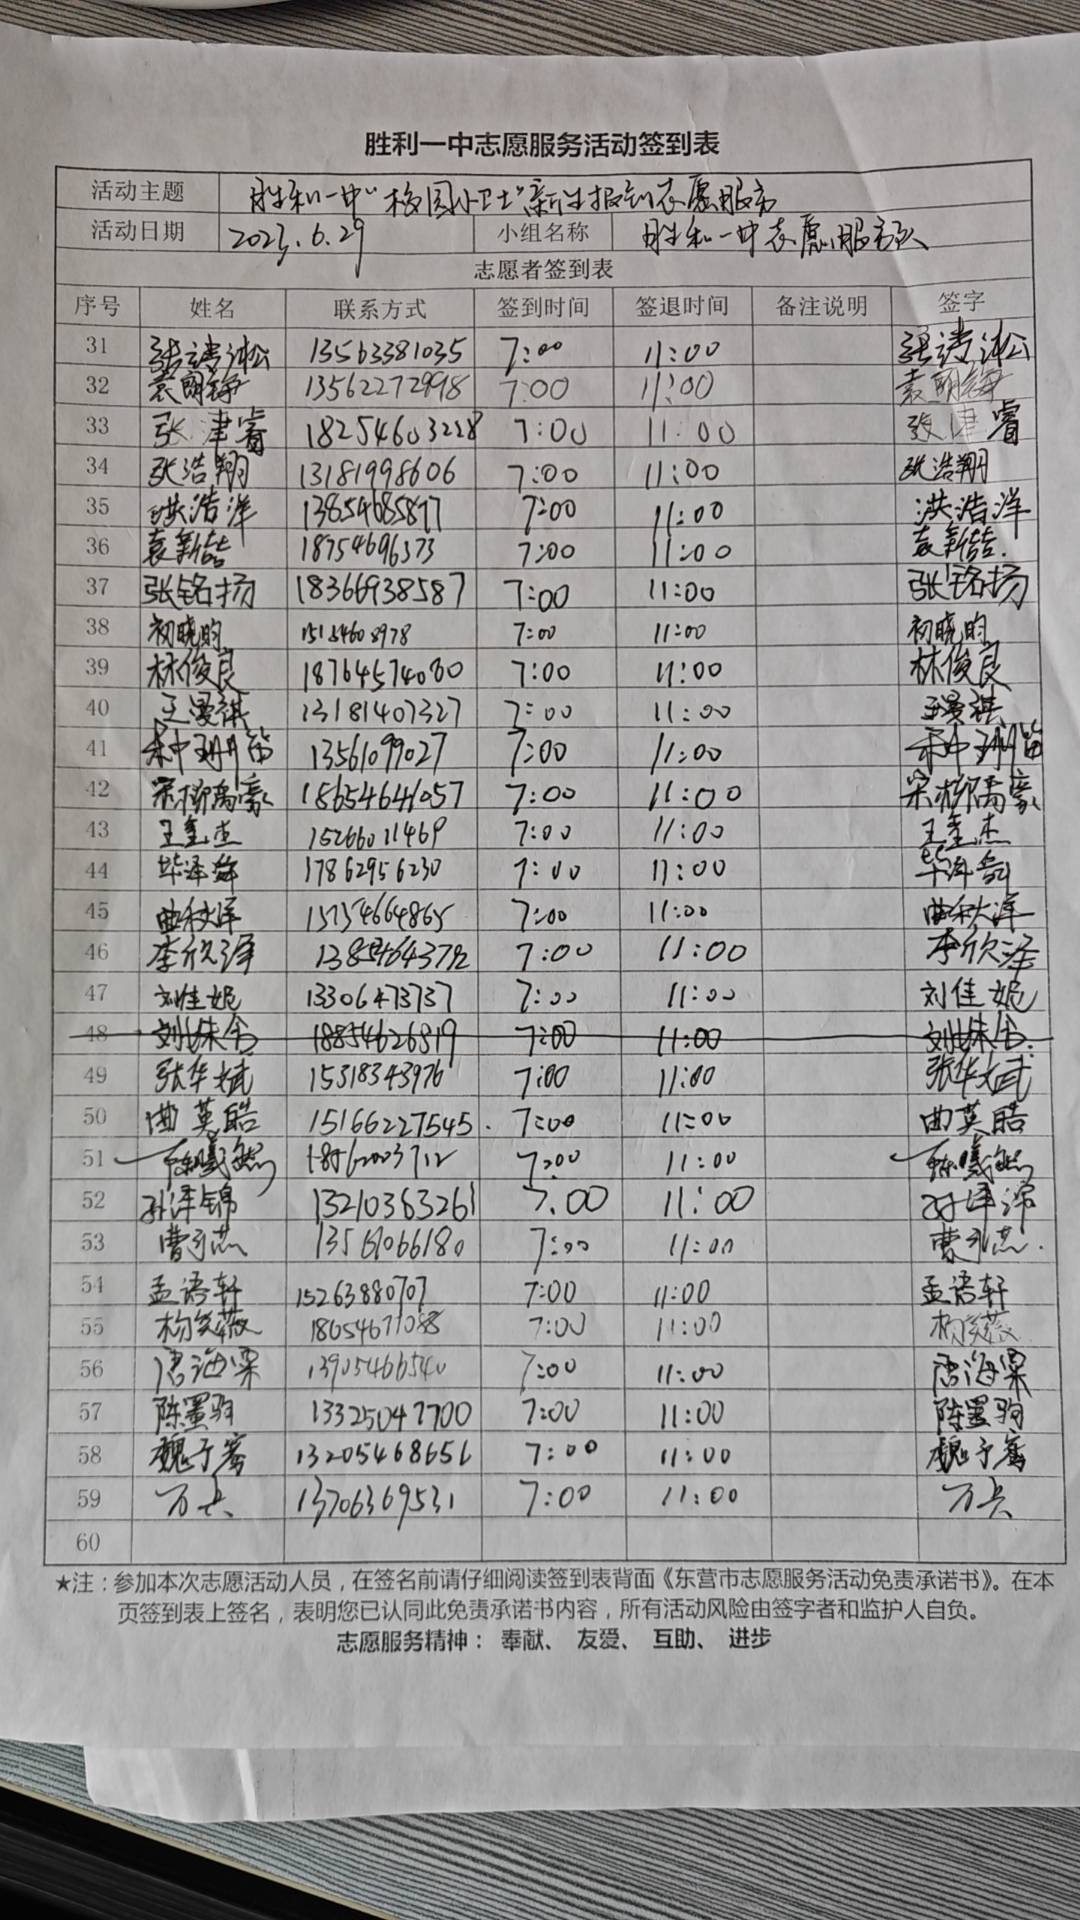 胜利一中志愿服务活动签到表
活动主题 胜利一中“校园小卫士”新生报到志愿服务
活动日期 2023.6.29 小组名称 胜利一中志愿服务队
志愿者签到表
序号 姓名 联系方式 签到时间 签退时间 备注说明 签字
31 张涛淞 13563381035 7:00 11:00 张涛淞
32 袁朗铮 13562272998 7:00 11:00 袁朗铮
33 张津睿 18254603228 7:00 11:00 张津睿
34 张浩翔 13181998606 7:00 11:00 张浩翔
35 洪浩洋 13854685877 7:00 11:00 洪浩洋
36 袁新喆 18754696373 7:00 11:00 袁新喆
37 张铭扬 18366938587 7:00 11:00 张铭扬
38 初晓昀 7:00 11:00 初晓昀
39 林俊良 18764574080 7:00 11:00 林俊良
40 王曼祺 13181407327 7:00 11:00 王曼祺
41 13561099027 7:00 11:00
42 宋柳禹豪 18654641057 7:00 11:00 宋柳禹豪
43 王奎杰 15266011469 7:00 11:00 王奎杰
44 17862956230 7:00 11:00
45 曲秋泽 15754664865 7:00 11:00 曲秋泽
46 李欣泽 7:00 11:00 李欣泽
47 刘佳妮 13306473737 7:00 11:00 刘佳妮
48 18854626819 7:00 11:00
49 张华斌 15318343976 7:00 11:00 张华斌
50 曲英皓 15166227545 7:00 11:00 曲英皓
51 陈曦然 7:00 11:00 陈曦然
52 孙泽锦 13210363261 7:00 11:00 孙泽锦
53 13561066180 7:00 11:00
54 孟语轩 15263880707 7:00 11:00 孟语轩
55 杨笑薇 18654671088 7:00 11:00 杨笑薇
56 唐海杲 13905466540 7:00 11:00 唐海杲
57 陈墨驹 13325047700 7:00 11:00 陈墨驹
58 魏予骞 13205468651 7:00 11:00 魏予骞
59 万兵 13706369531 7:00 11:00 万兵
60
★注：参加本次志愿活动人员，在签名前请仔细阅读签到表背面《东营市志愿服务活动免责承诺书》。在本
页签到表上签名，表明您已认同此免责承诺书内容，所有活动风险由签字者和监护人自负。
志愿服务精神： 奉献、 友爱、 互助、 进步